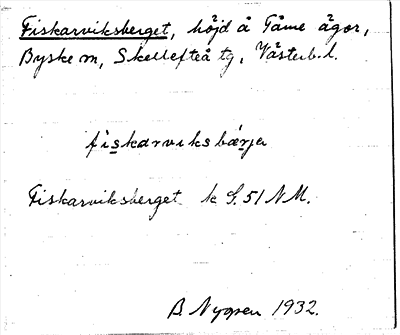 Fiskarviksberget, höjd å Tåme ägor,
Byske sn, Skellefteå tg, Västerb. l.
fiskarviksbärja
Fiskarviksberget k S. 51 NM.
B. Nygren 1932.